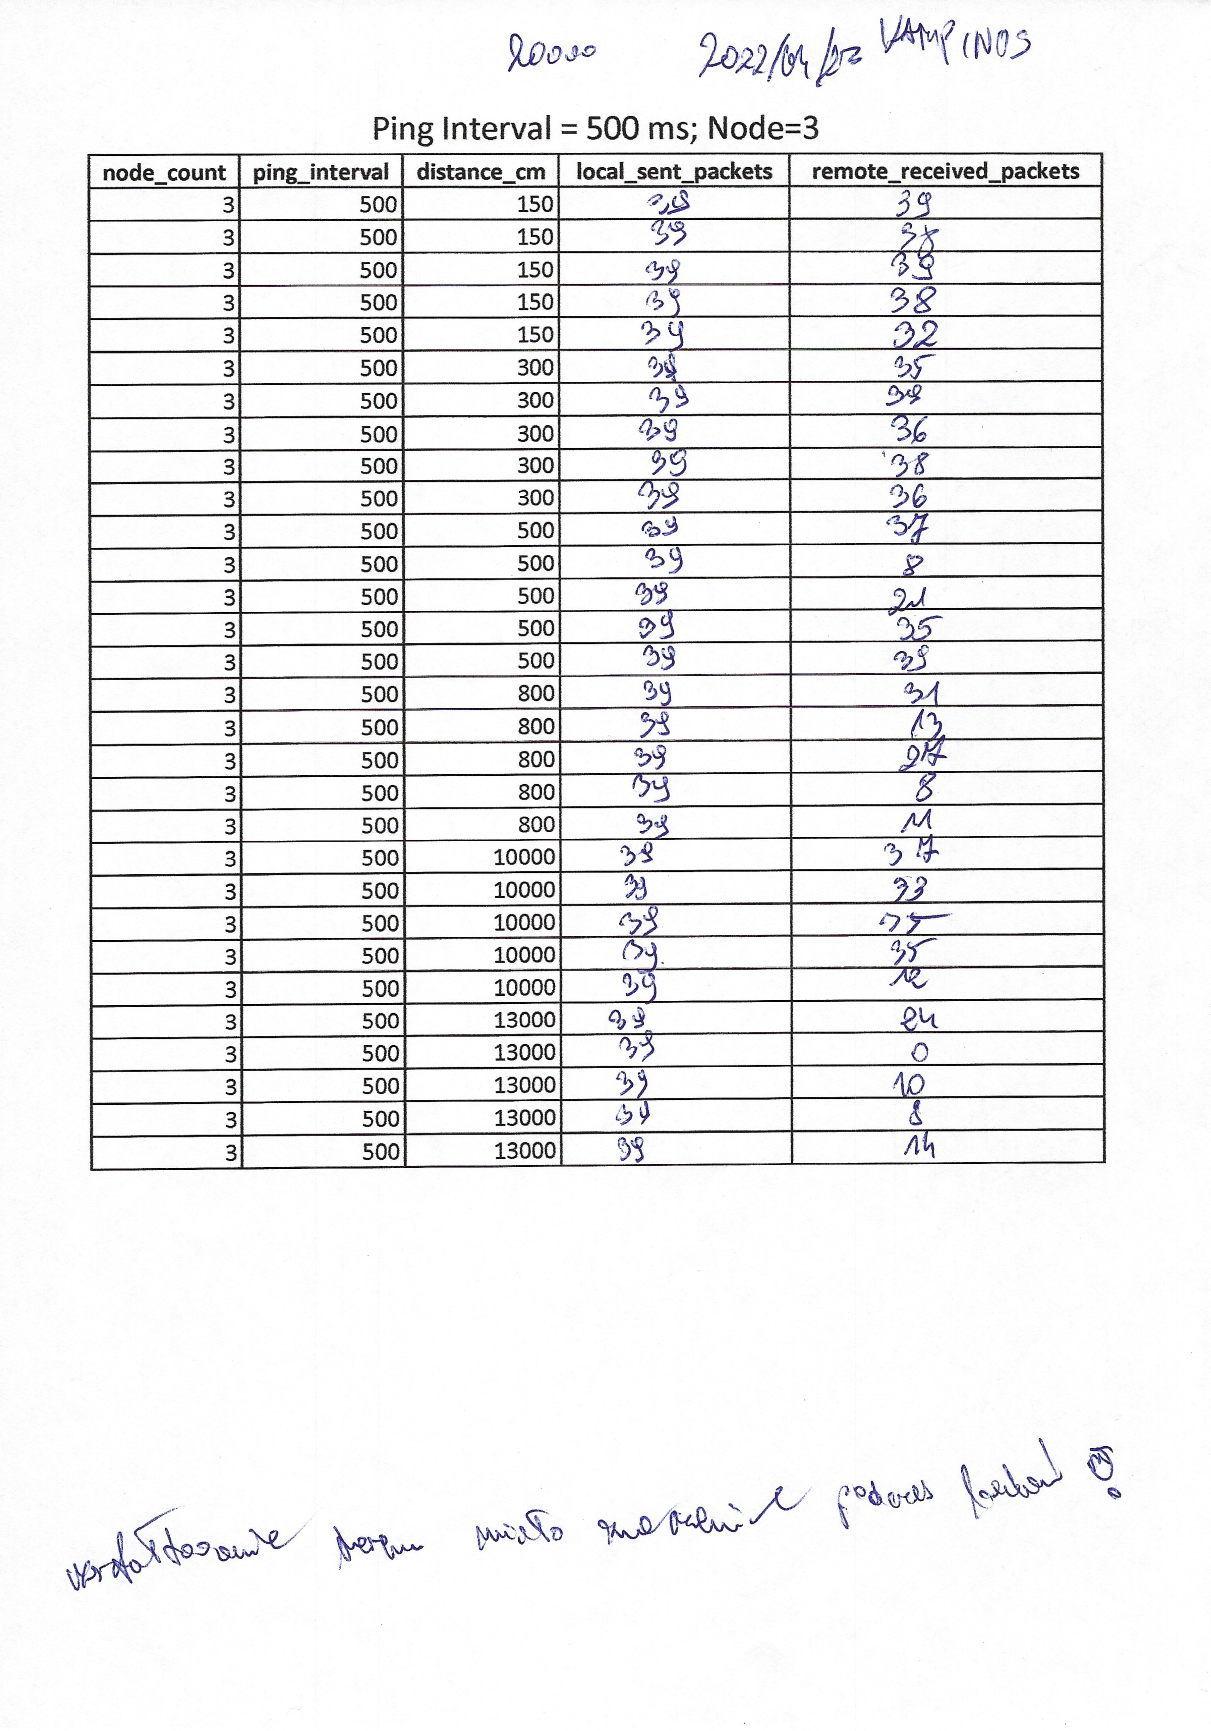 20000 2022/04/23 KAMPINOS
Ping Interval = 500 ms; Node=3
node_count ping_interval distance_cm local_sent_packets remote_received_packets
3 500 150 39 39
3 500 150 39 38
3 500 150 39 39
3 500 150 39 38
3 500 150 39 32
3 500 300 39 35
3 500 300 39 39
3 500 300 39 36
3 500 300 39 38
3 500 300 39 36
3 500 500 39 37
3 500 500 39 8
3 500 500 39 21
3 500 500 39 35
3 500 500 39 39
3 500 800 39 31
3 500 800 39 13
3 500 800 39 27
3 500 800 39 8
3 500 800 39 11
3 500 10000 39 37
3 500 10000 39 33
3 500 10000 39
3 500 10000 39 35
3 500 10000 39 12
3 500 13000 39 24
3 500 13000 39 0
3 500 13000 39 10
3 500 13000 39 8
3 500 13000 39 14
ukształtowanie terenu miało znaczenie podczas badań